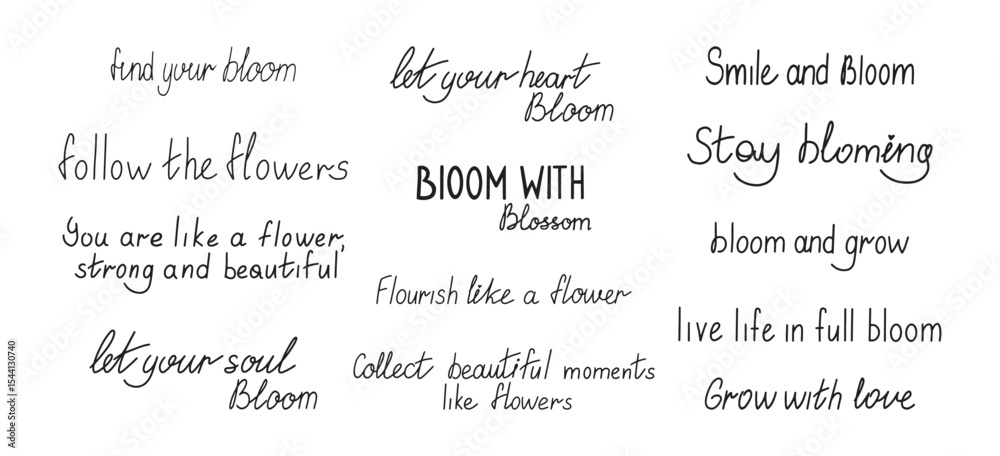 find your bloom
follow the flowers
You are like a flower,
strong and beautiful
let your soul
Bloom
let your heart
Bloom
BlOOM WITH
Blossom
Flourish like a flower
Collect beautiful moments
like flowers
Smile and Bloom
Stay bloming
bloom and grow
live life in full bloom
Grow with love
Adobe Stock | #1544130740